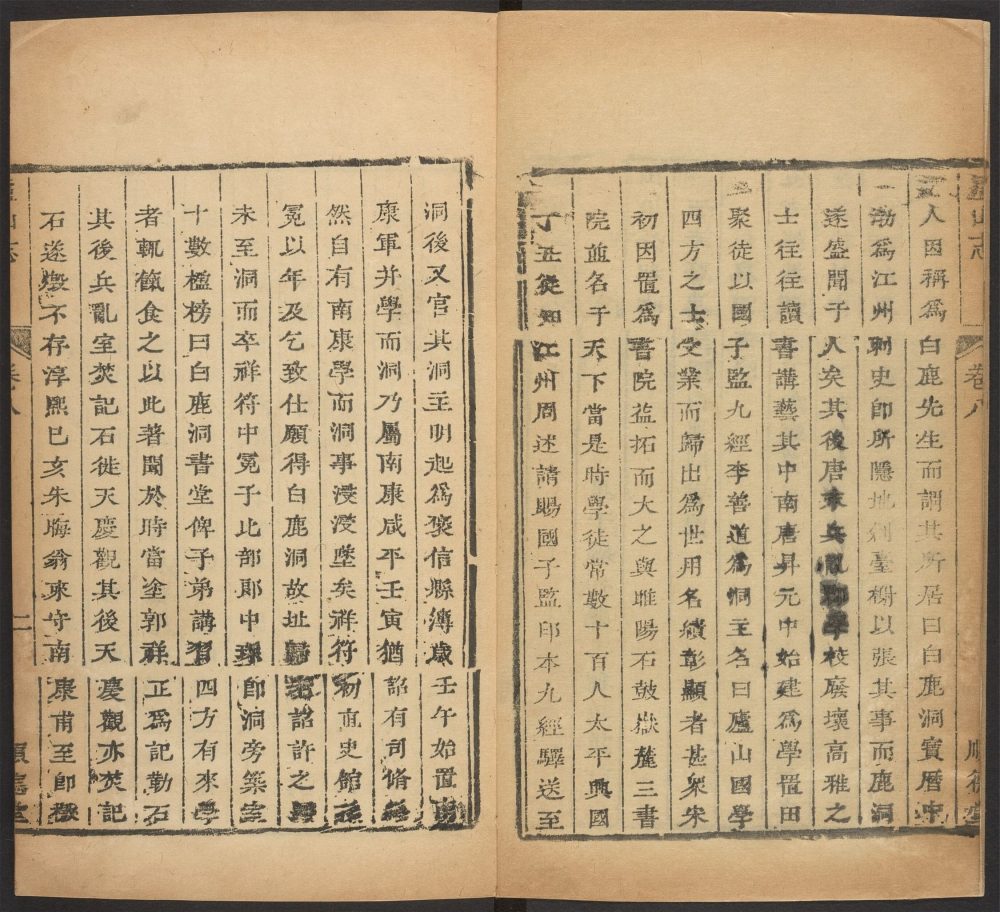 山志 卷八 順德堂
人因稱爲白鹿先生而謂其所居曰白鹿洞寶曆中
渤爲江州刺史卽所隱地創臺榭以張其事而鹿洞
遂盛聞于人矣其後唐末兵亂郡學校廢壞高雅之
士往往讀書講藝其中南唐昇元中始建爲學置田
聚徒以國子監九經李善道爲洞主名曰廬山國學
四方之士受業而歸出爲世用名績彰顯者甚衆宋
初因置爲書院益拓而大之與睢陽石鼓嶽麓三書
院並名于天下當是時學徒常數十百人太平興國
丁丑從知江州周述請賜國子監印本九經驛送至
洞後又官其洞主明起爲褒信縣簿歲壬午始置南
康軍并學而洞乃屬南康咸平壬寅猶詔有司脩
然自有南康學而洞事浸浸墜矣祥符初直史館孫
冕以年及乞致仕願得白鹿洞故址歸老詔許之
未至洞而卒祥符中冕子比部郎中琛卽洞旁築室
十數楹榜曰白鹿洞書堂俾子弟講習四方有來學
者輒餼食之以此著聞於時當塗郭祥正爲記勒石
其後兵亂室焚記石徙天慶觀其後天慶觀亦焚記
石遂燬不存淳熙己亥朱晦翁來守南康甫至卽檄
山志 卷八 二 順德堂